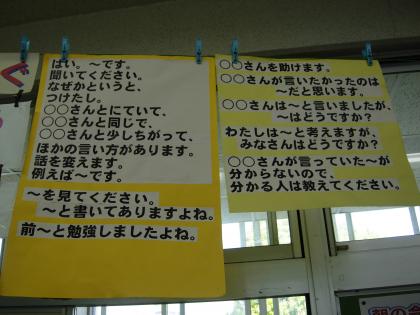 はい。～です。
聞いてください。
なぜかというと、
つけたし。
○○さんとにていて、
○○さんと同じで、
○○さんと少しちがって、
ほかの言い方があります。
話を変えます。
例えば～です。
～を見てください。
～と書いてありますよね。
前～と勉強しましたよね。
○○さんを助けます。
○○さんが言いたかったのは
～だと思います。
○○さんは～と言いましたが、
～はどうですか？
わたしは～と考えますが、
みなさんはどうですか？
○○さんが言っていた～が
分からないので、
分かる人は教えてください。
ぐ